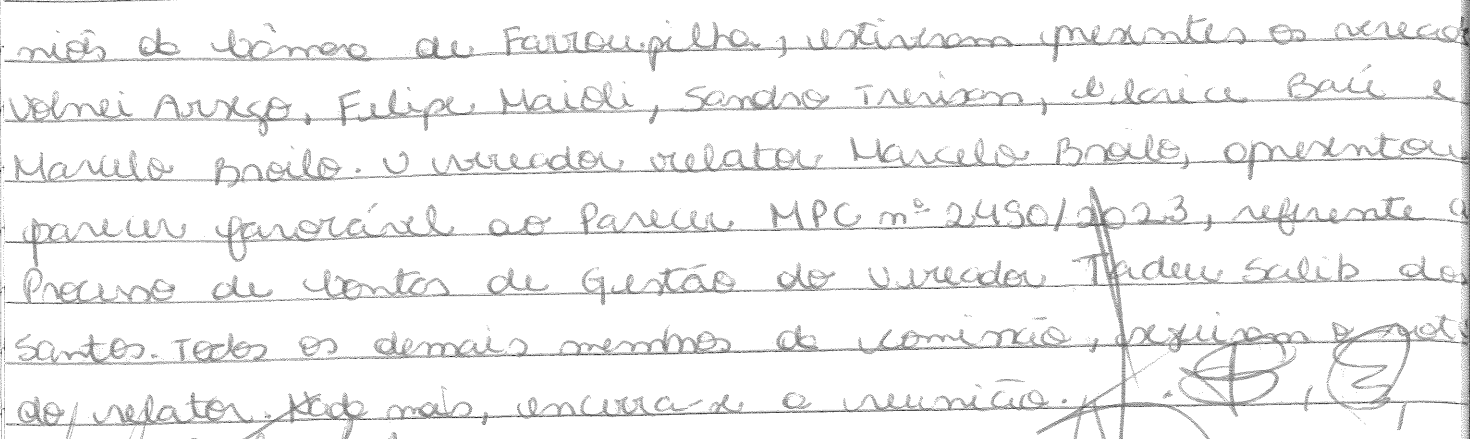 niões da Câmara de Farroupilha, estiveram presentes os veread
Volnei Arsego, Felipe Maioli, Sandro Trevisan, Clarice Baú e
Marcelo Broilo. O vereador relator Marcelo Broilo, apresentou
parecer favorável ao Parecer MPC nº 2490/2023, referente a
Processo de Contas de Gestão do Vereador Tadeu Salib dos
Santos. Todos os demais membros da comissão, seguiram o voto
do relator. Nada mais, encerra-se a reunião.